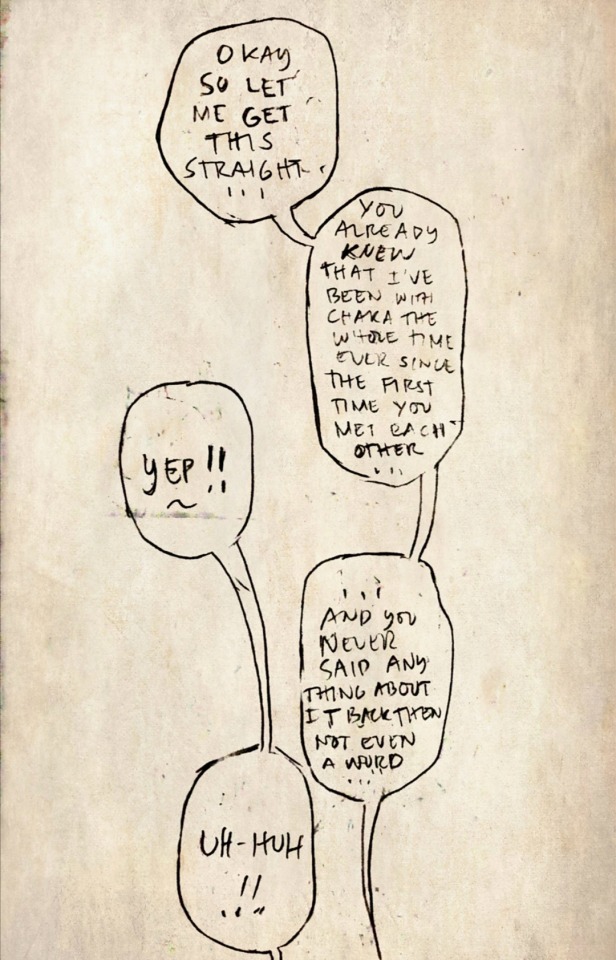 OKAY
SO LET
ME GET
THIS
STRAIGHT
...
YOU
ALREADY
KNEW
THAT I'VE
BEEN WITH
CHAKA THE
WHOLE TIME
EVER SINCE
THE FIRST
TIME YOU
MET EACH
OTHER
...
YEP!!
~
...
AND YOU
NEVER
SAID ANY
THING ABOUT
IT BACK THEN
NOT EVEN
A WORD
...
UH-HUH
!!
...